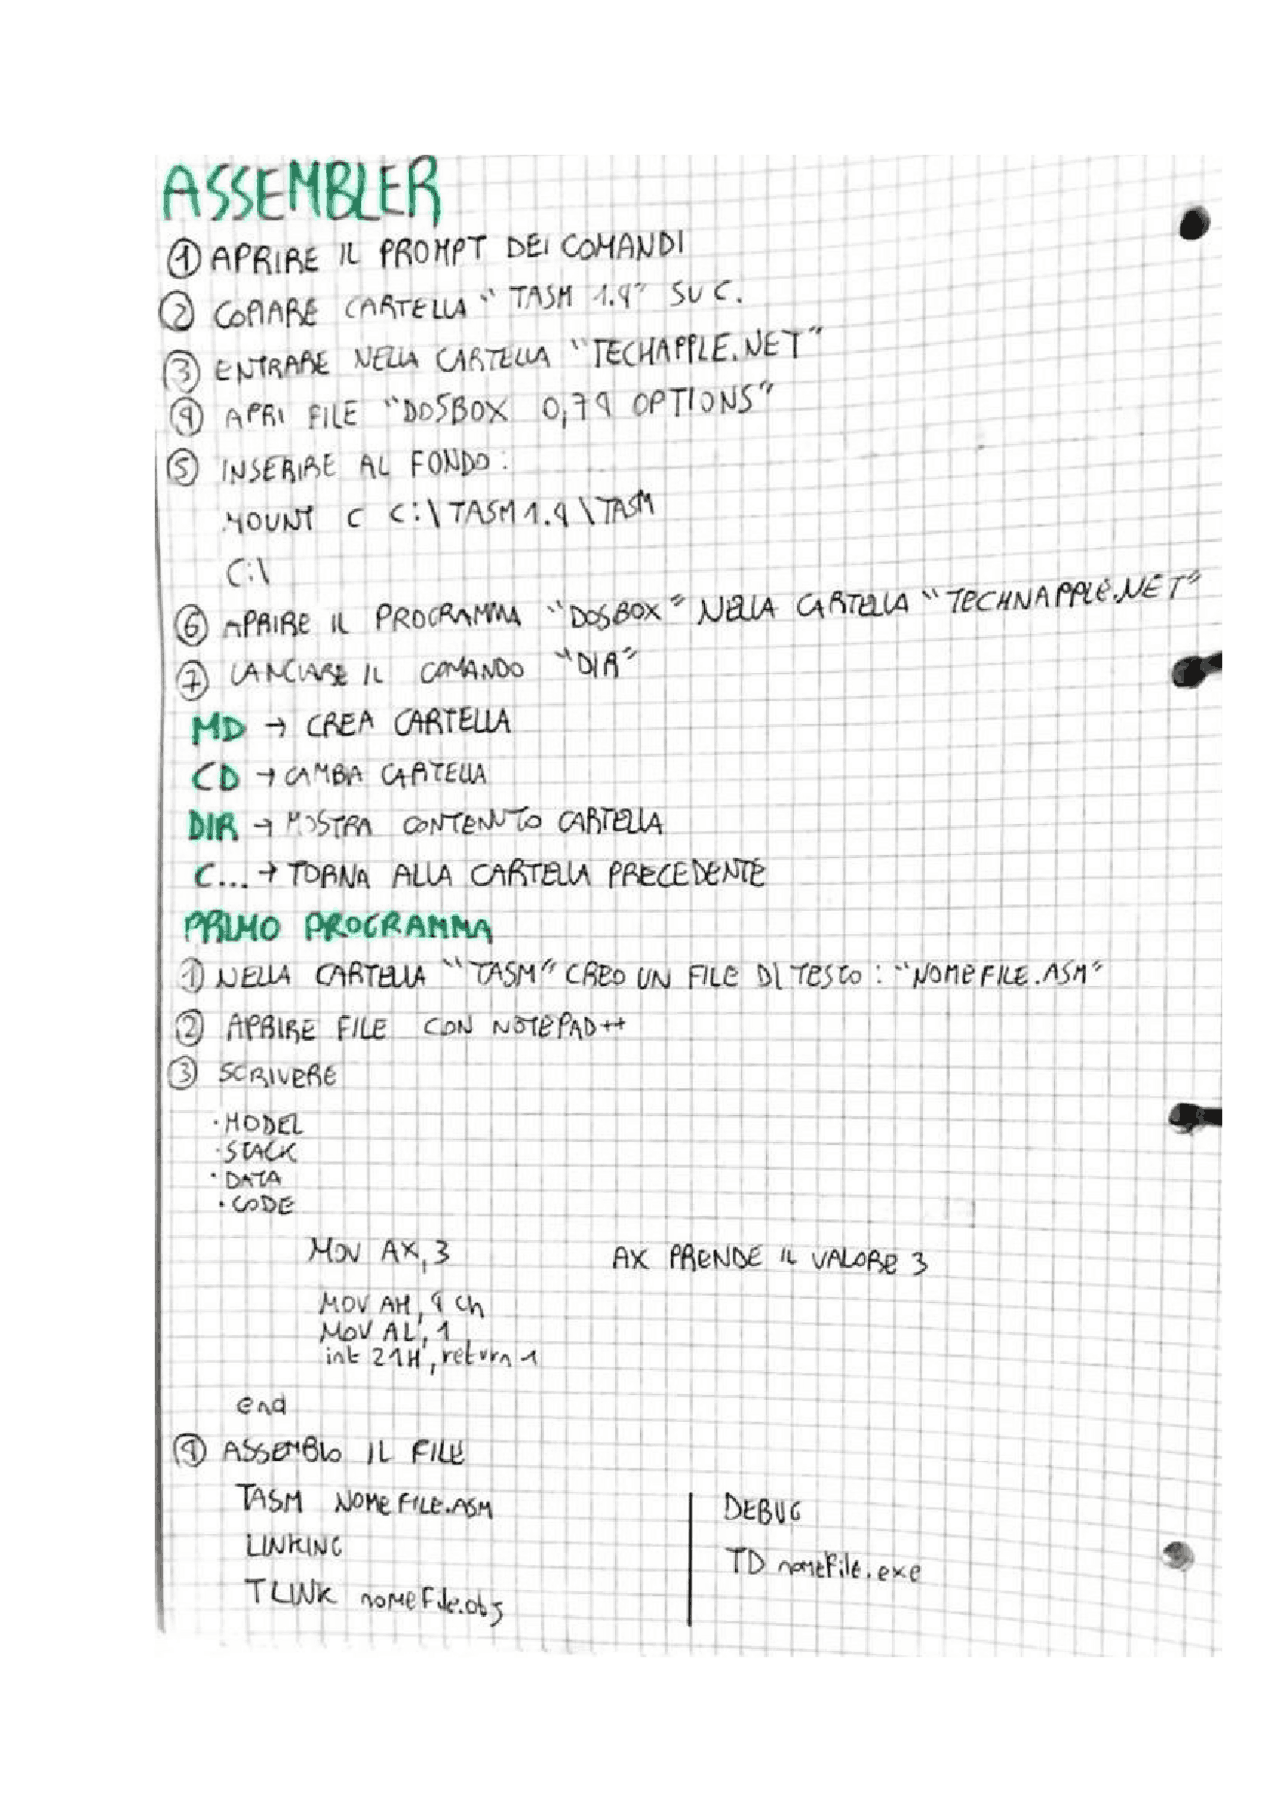 ASSEMBLER
① APRIRE IL PROMPT DEI COMANDI
② COPIARE CARTELLA "TASM 1.4" SU C.
③ ENTRARE NELLA CARTELLA "TECHAPPLE.NET"
④ APRI FILE "DOSBOX 0,74 OPTIONS"
⑤ INSERIRE AL FONDO:
MOUNT C C:\TASM1.4\TASM
C:\
⑥ APRIRE IL PROGRAMMA "DOSBOX" NELLA CARTELLA "TECHNAPPLE.NET"
⑦ LANCIARE IL COMANDO "DIR"
MD → CREA CARTELLA
CD → CAMBIA CARTELLA
DIR → MOSTRA CONTENUTO CARTELLA
C... → TORNA ALLA CARTELLA PRECEDENTE
PRIMO PROGRAMMA
① NELLA CARTELLA "TASM" CREO UN FILE DI TESTO: "NOMEFILE.ASM"
② APRIRE FILE CON NOTEPAD++
③ SCRIVERE
.MODEL
.STACK
.DATA
.CODE
MOV AX,3 AX PRENDE IL VALORE 3
MOV AH, 4Ch
MOV AL, 1
int 21H, return 1
end
④ ASSEMBLO IL FILE
TASM NOMEFILE.ASM
LINKING
TLINK nomeFile.obj
DEBUG
TD nomeFile.exe